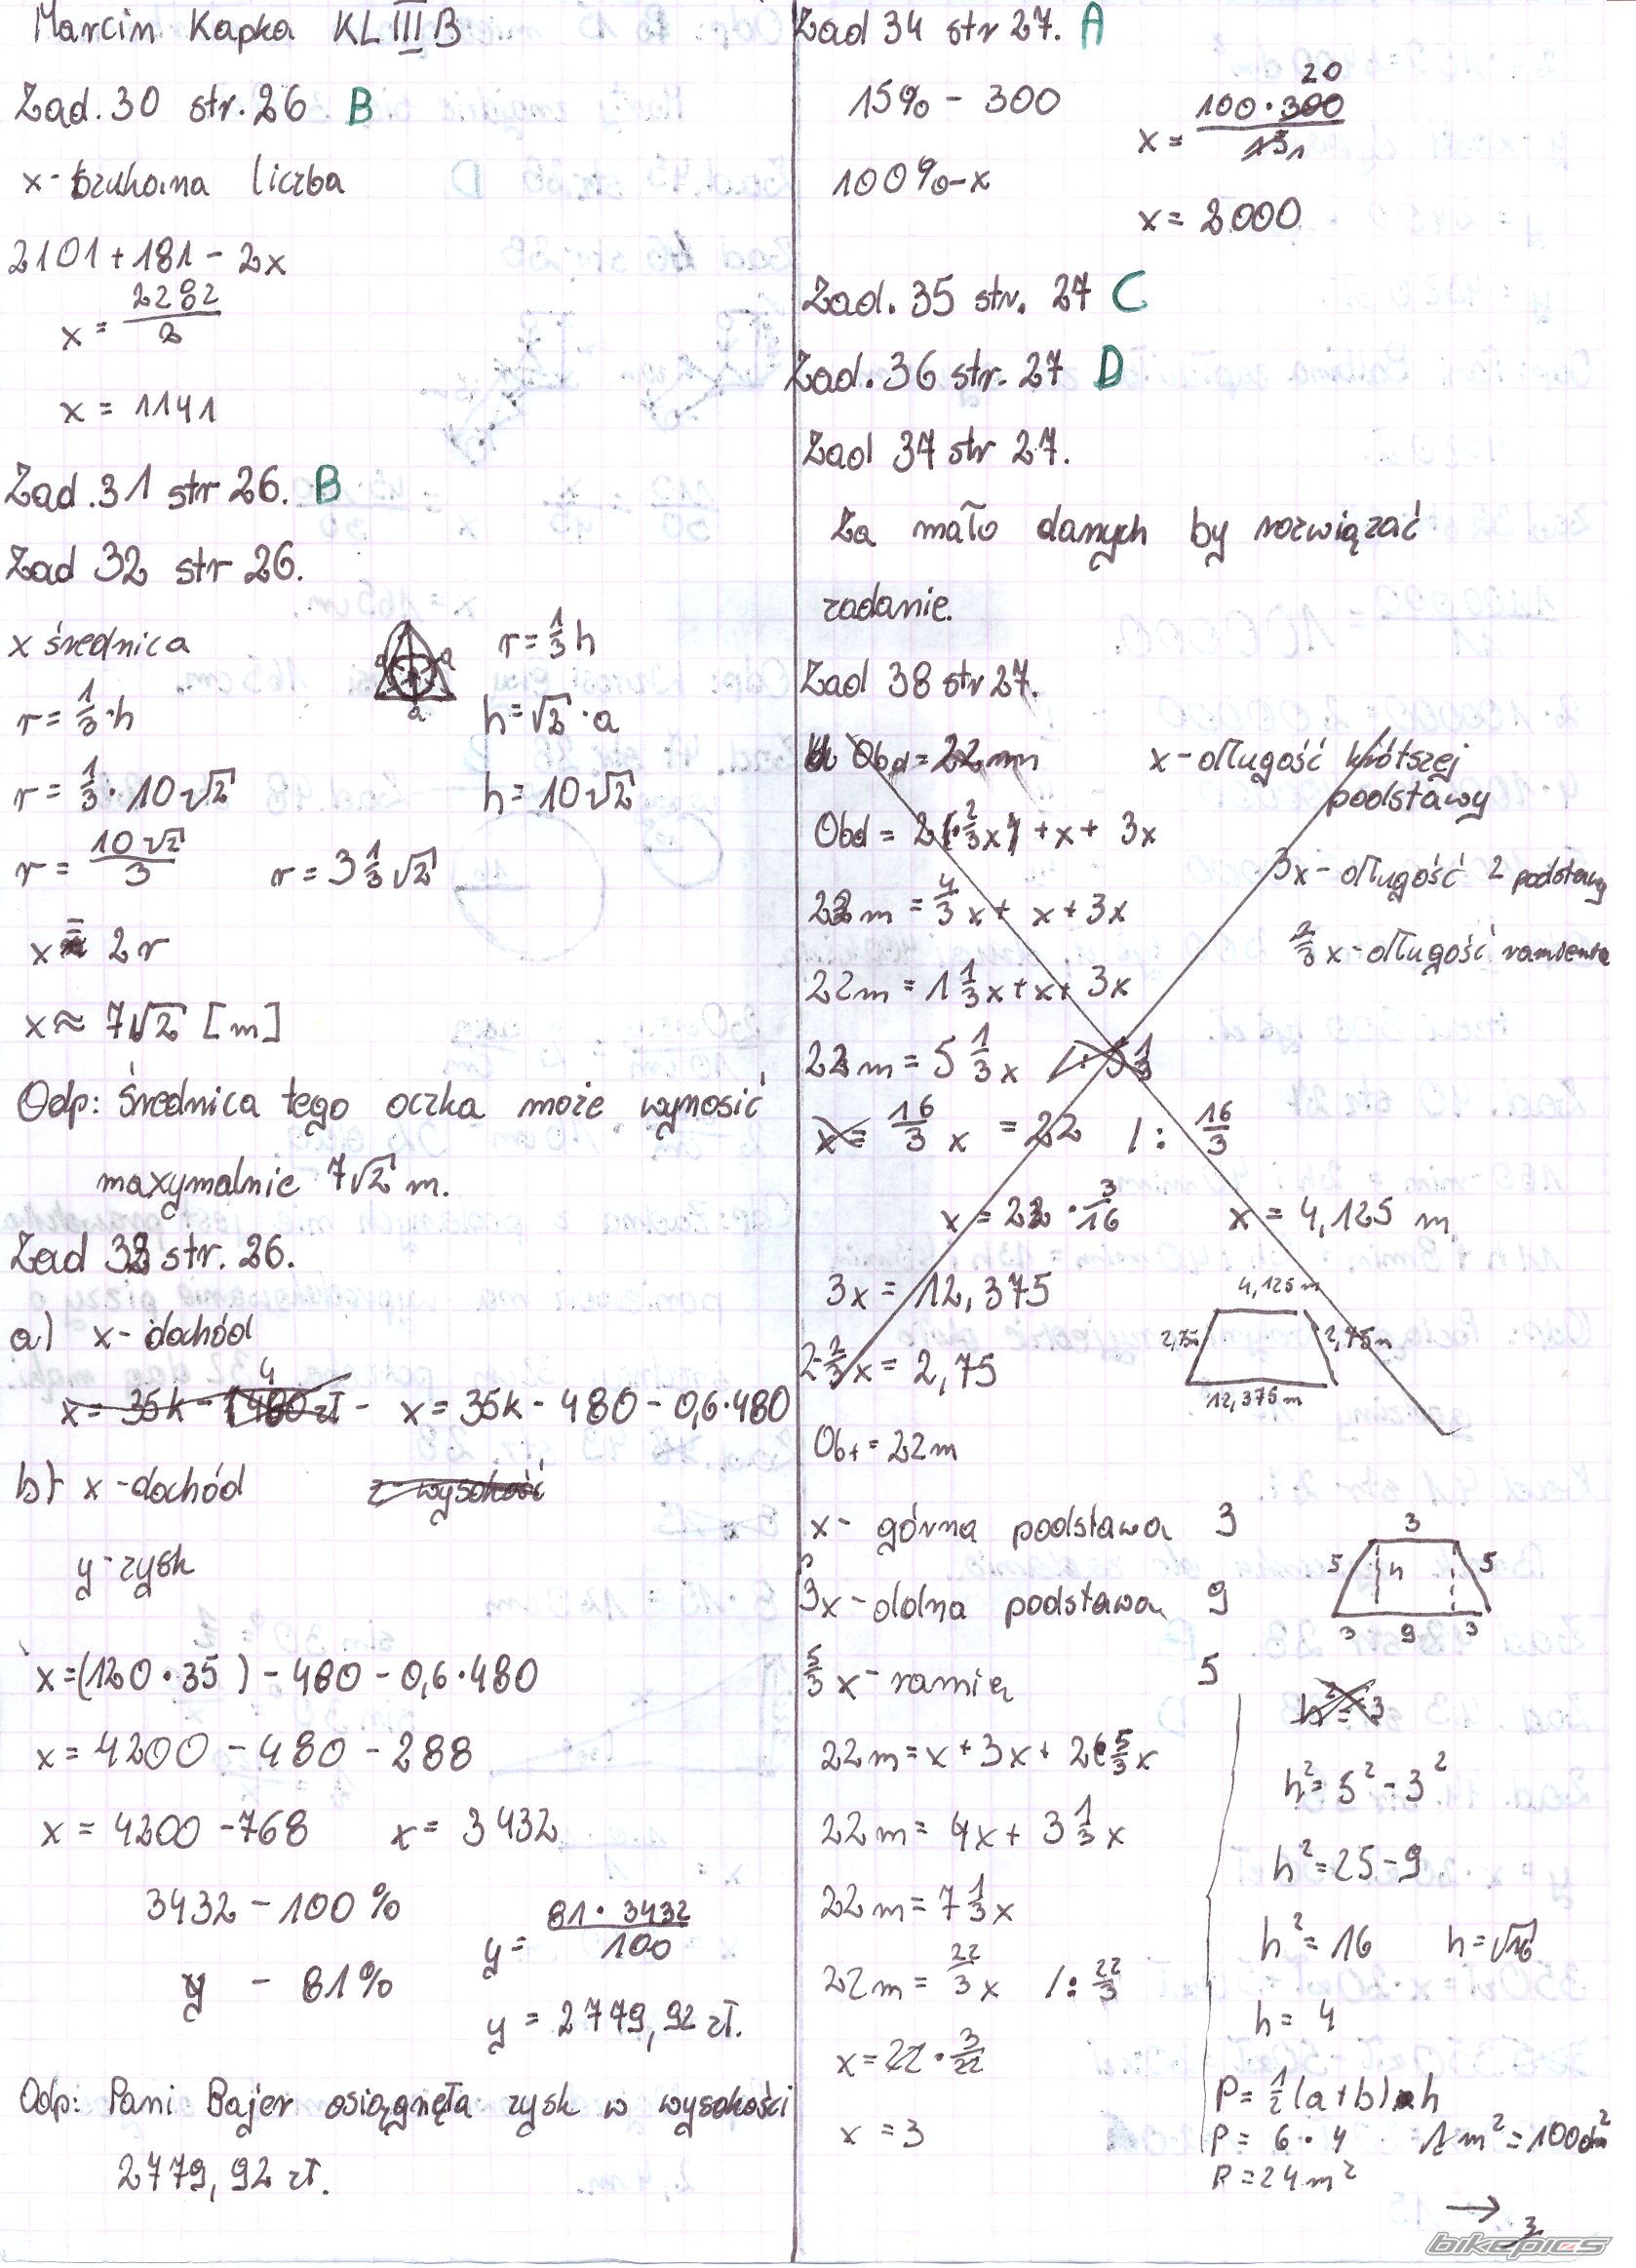 Marcin Kapka KL III B
Zad. 30 str. 26 B
x - szukana liczba
2101 + 181 - 2x
x = 2282/2
x = 1141
Zad. 31 str 26. B
Zad 32 str 26.
x średnica
r = 1/3 · h
r = 1/3 · 10√2
r = 10√2/3 r = 3 1/3 √2
a a
a
r = 1/3 h
h = √2 · a
h = 10√2
x = 2r
x ≈ 7√2 [m]
Odp: Średnica tego oczka może wynosić
maxymalnie 7√2 m.
Zad 33 str. 26.
a) x - dochód
x = 35k - 480 zł - x = 35k - 480 - 0,6 · 480
b) x - dochód z - wysokość
y - zysk
x = (120 · 35) - 480 - 0,6 · 480
x = 4200 - 480 - 288
x = 4200 - 768 x = 3432
3432 - 100%
y - 81%
y = 81 · 3432/100
y = 2779,92 zł.
Odp: Pani Bajer osiągnęła zysk w wysokości
2779,92 zł.
Zad 34 str 27. A
15% - 300
100% - x
20
x = 100 · 300/15 1
x = 2000
Zad. 35 str. 27 C
Zad. 36 str. 27 D
Zad 37 str 27.
Za mało danych by rozwiązać
zadanie.
Zad 38 str 27.
Obd = 22 m x - długość krótszej
podstawy
Obd = 2(· 2/3 x) + x + 3x
3x - długość 2 podstawy
22 m = 4/3 x + x + 3x
2/3 x - długość ramienia
22 m = 1 1/3 x + x + 3x
22 m = 5 1/3 x /: 5 1/3
x = 16/3 x = 22 /: 16/3
x = 22 · 3/16 x = 4,125 m
3x = 12,375
2 · 2/3 x = 2,75
4,125 m
2,75 2,75 m
12,375 m
Ob+ = 22 m
x - górna podstawa 3
3x - dolna podstawa 9
5/3 x - ramię 5
3
5 h 5
3 9 3
22 m = x + 3x + 2 · 5/3 x
22 m = 4x + 3 1/3 x
22 m = 7 1/3 x
22 m = 22/3 x /: 22/3
x = 22 · 3/22
x = 3
h² = 3
h² = 5² - 3²
h² = 25 - 9
h² = 16 h = √16
h = 4
P = 1/2 (a + b) · h
P = 6 · 4 1 m² = 100 dm²
P = 24 m²
→
bikepics